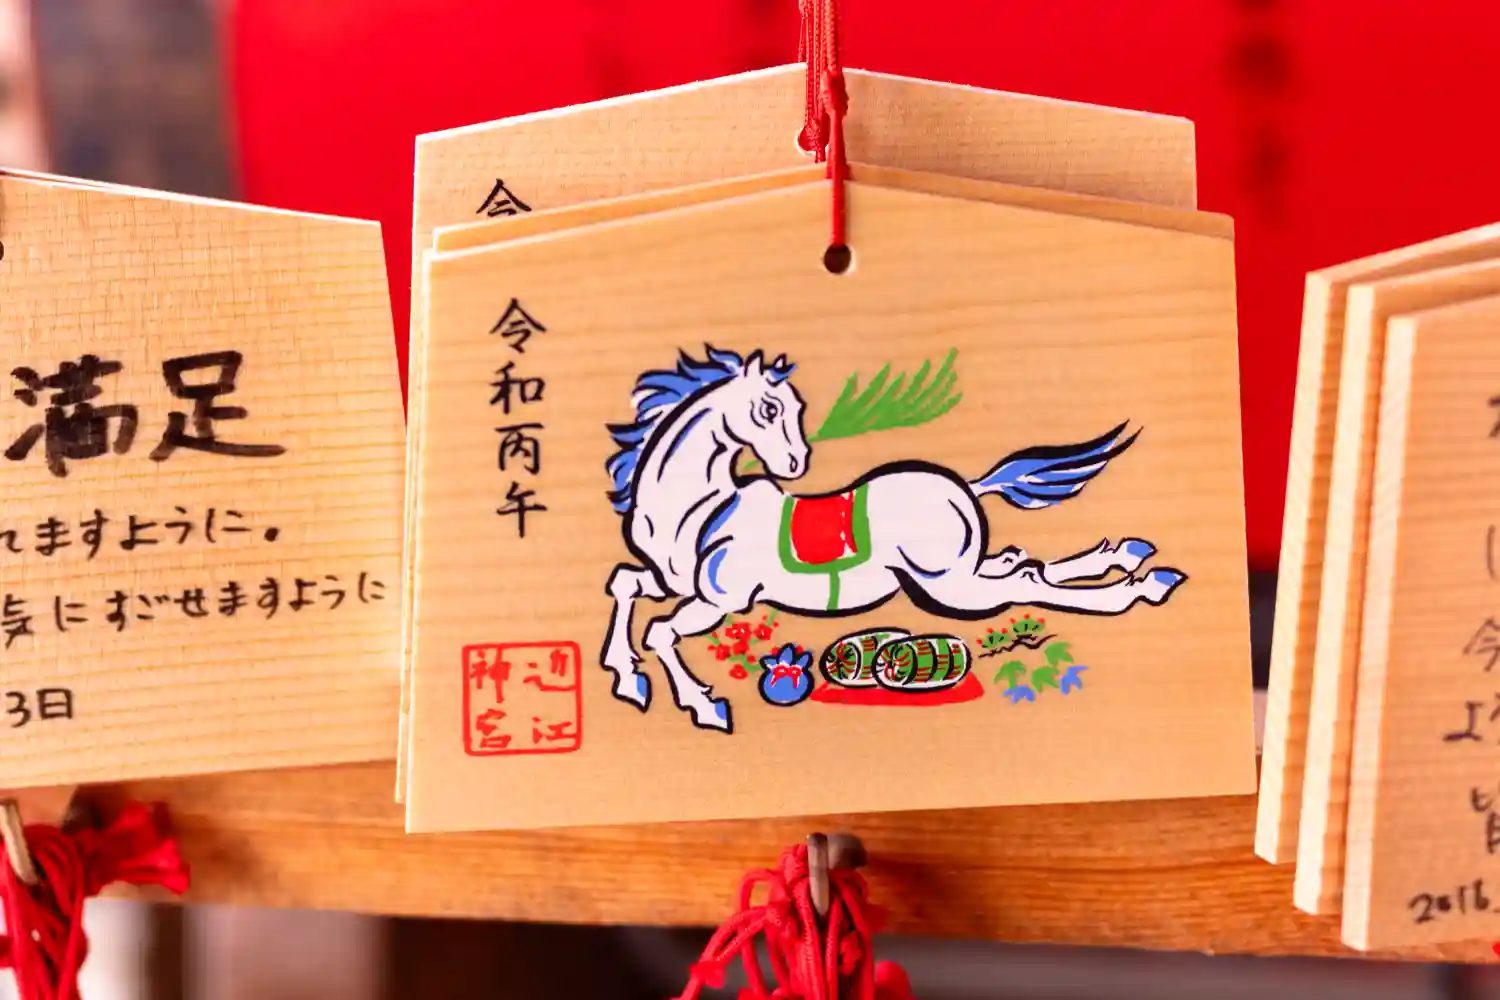 満足
てますように。
気にすごせますように
3日
令
令和丙午
近江
神宮
今
よう
皆
2016